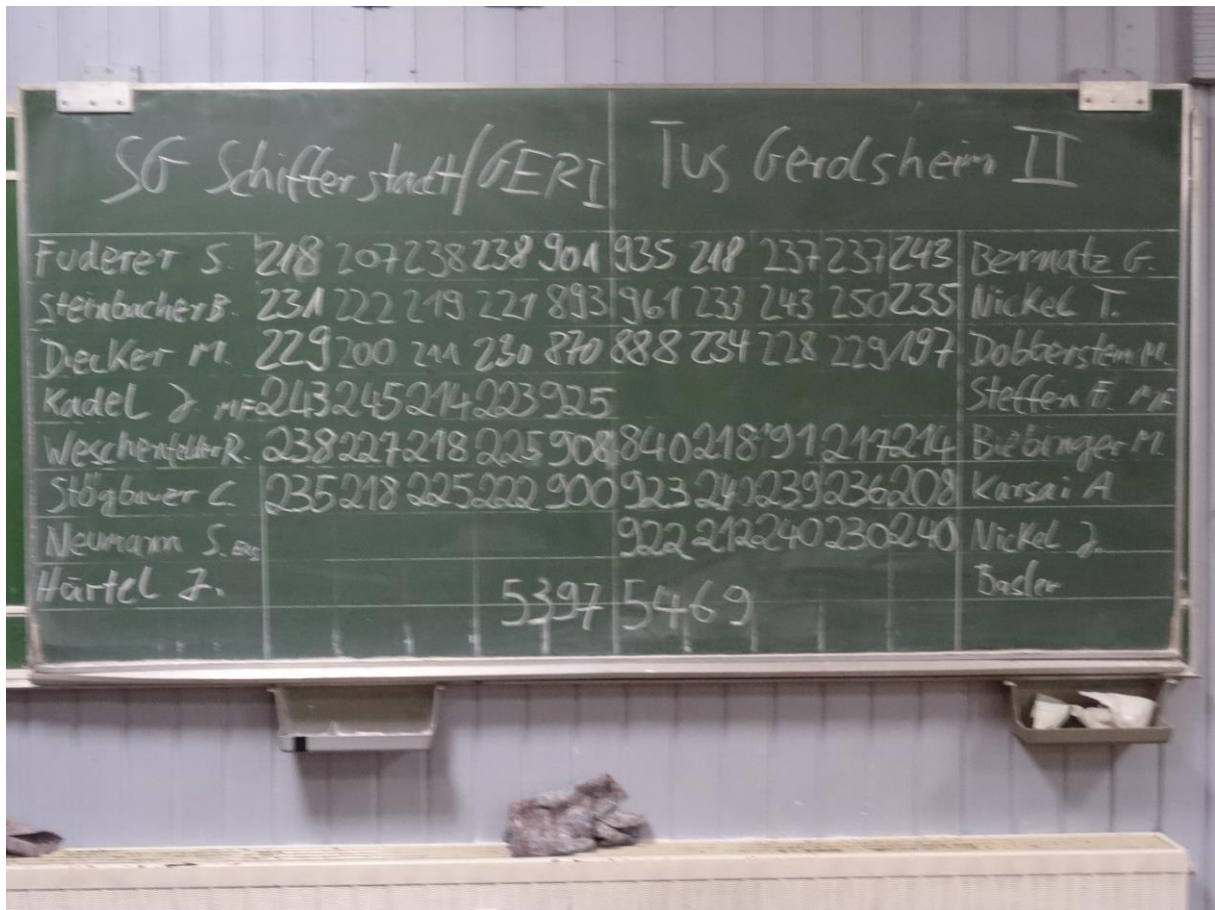 SG Schifferstadt/GERI Tus Gerolsheim II
Fuderer S. 218 207 238 238 901 935 218 237 237 243 Bernatz G.
Steinbacher B. 231 222 219 221 893 961 233 243 250 235 Nickel T.
Decker M. 229 200 211 230 870 888 234 228 229 197 Dobberstein M.
Kadel J. MF 243 245 214 223 925 Steffen F. MF
Weschenfelder R. 238 227 218 225 908 840 218 191 217 214 Biebinger M.
Stögbauer C. 235 218 225 222 900 923 240 239 236 208 Karsai A.
Neumann S. ERS 922 212 240 230 240 Nickel J.
Härtel J. 5397 5469 Basler